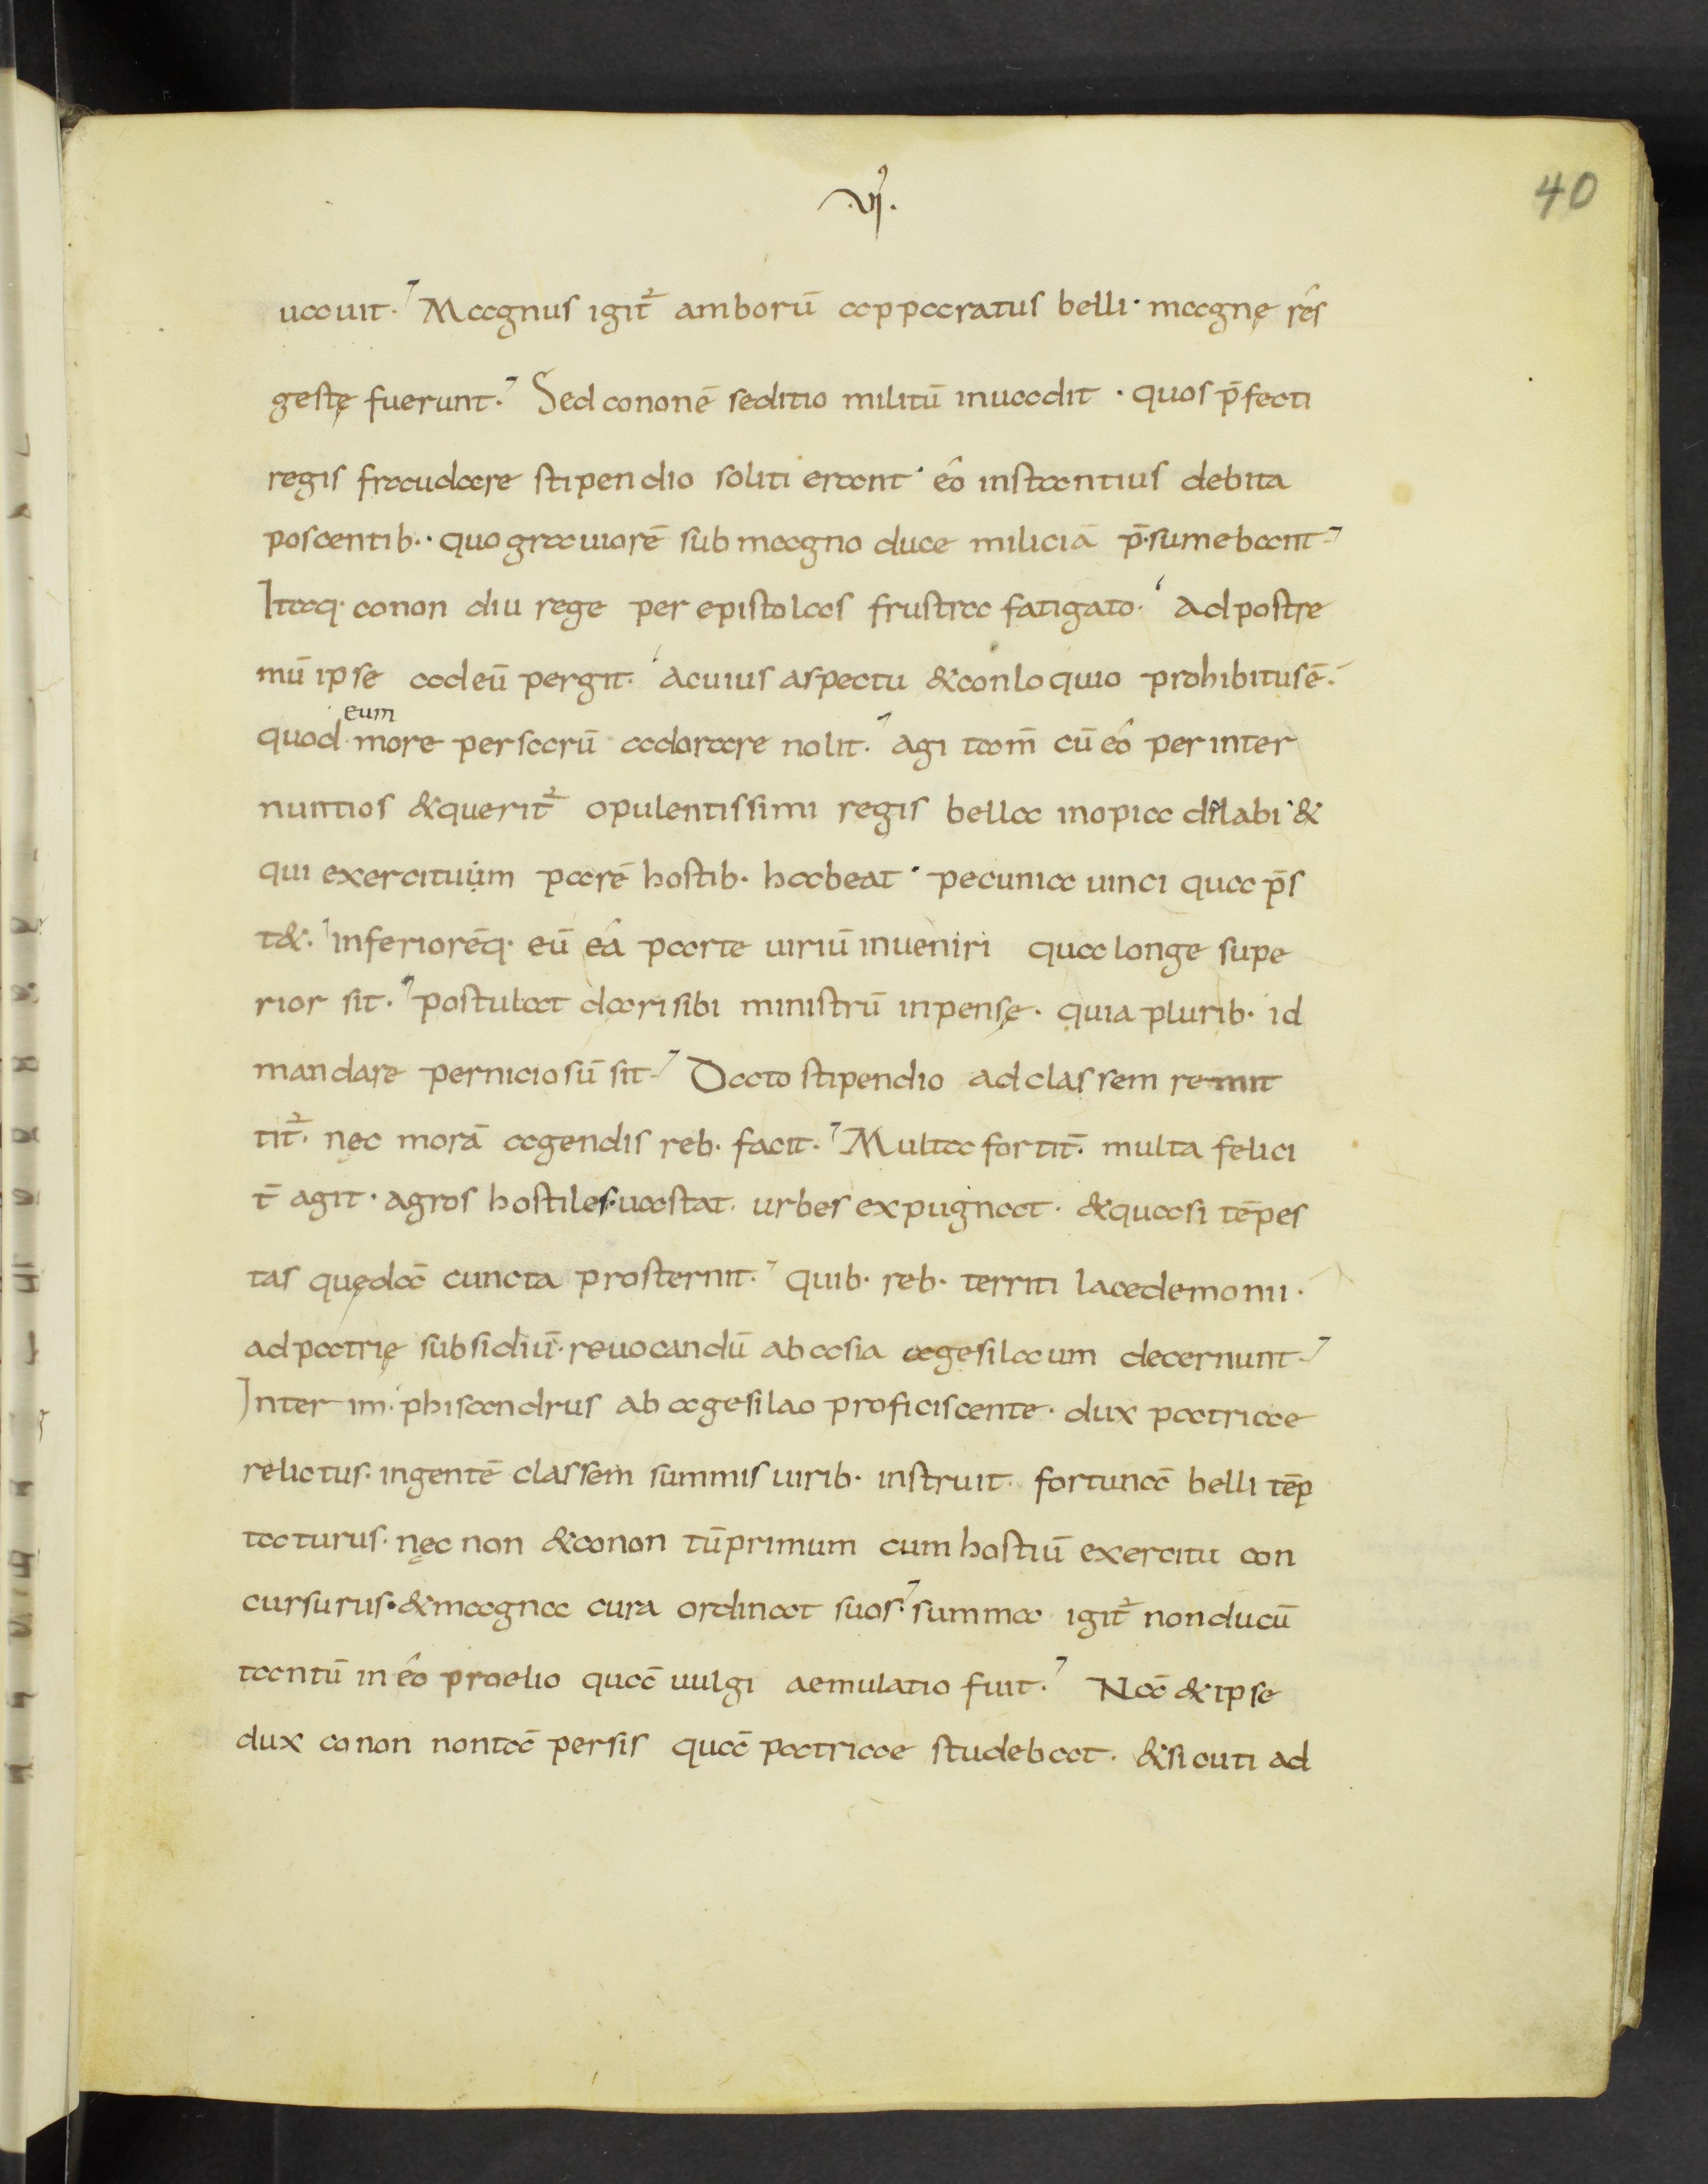 .vi.
40
uauit. Magnus igit̄ amborū apparatus belli · magnę rês
gestę fuerunt. Sed cononē seditio militū inuadit · quos p̄fecti
regis fraudare stipendio soliti erant · eô instantius debita
poscentib·· quo grauiorē sub magno duce miliciā p̄·sumebant
Itaq· conon diu rege per epistolas frustra fatigato. Ad postre
mū ipse ad eū pergit. a cuius aspectu & conloquio prohibitus ē.
quod eum more persarū adorare nolit. agi tam̄ cū eô per inter
nuntios & querit̄ opulentissimi regis bella inopia dilabi · &
qui exercituum parē hostib· habeat · pecunia uinci qua p̄s
t&. inferiorēq· eū eâ parte uiriū inueniri qua longe supe
rior sit. postulat dari sibi ministrū inpensę · quia plurib· id
mandare perniciosū sit. Dato stipendio ad classem remit
tit̄. nęc morā agendis reb· facit. Multa fortit̄. multa felici
t̄ agit · agros hostiles·uastat. urbes expugnat · & quasi tēpes
tas quędā cuncta prosternit. quib· reb· territi lacedemonii ·
ad patrię subsidiū· reuocandū ab asia agesilaum decernunt
Interim· phisandrus ab agesilao proficiscente · dux patriae
relictus· ingentē classem summis uirib· instruit. fortunā belli tēp
taturus · nęc non & conon tū primum cum hostiū exercitu con
cursurus·& magna cura ordinat suos. summa igit̄ non ducū
tantū in eô proelio quā uulgi aemulatio fuit. Nā & ipse
dux conon non tā persis quā patriae studebat. & sicuti ad